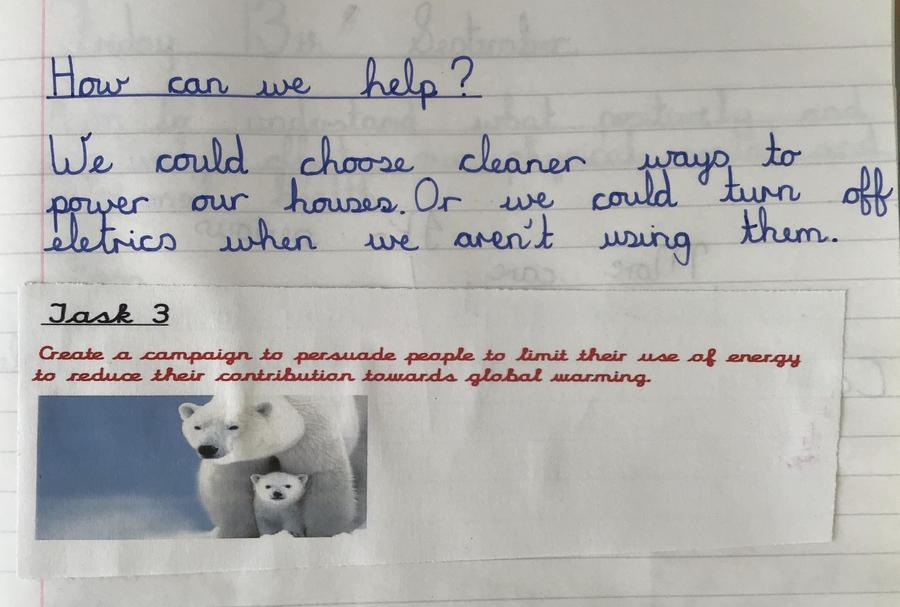 How can we help?
We could choose cleaner ways to
power our houses. Or we could turn off
eletrics when we aren't using them.
Task 3
Create a campaign to persuade people to limit their use of energy
to reduce their contribution towards global warming.